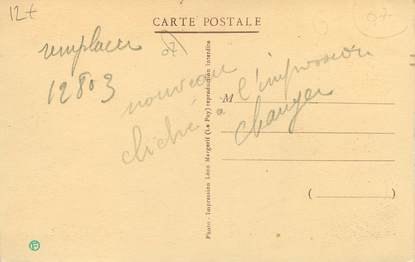 12+
CARTE POSTALE
07
07
remplacer
12803
nouveau
cliché
à l'impression
changer
M
Photo - Impression Léon Margerit (Le Puy) reproduction interdite
(
)